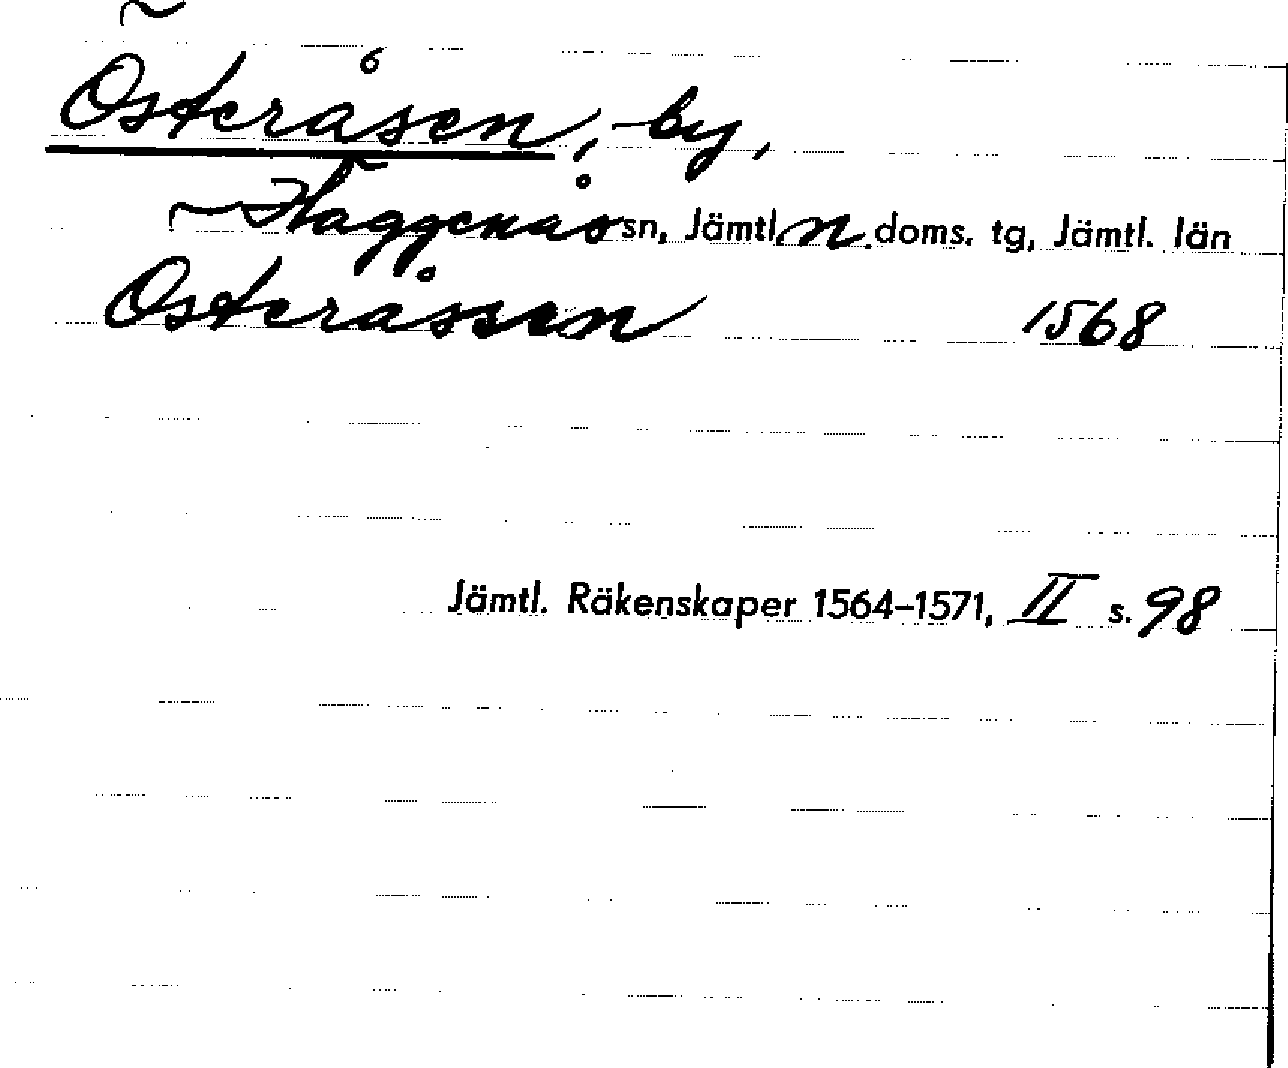 Österåsen, by,
Häggenås sn, Jämtl. n. doms. tg, Jämtl. län
Österåssen 1568
Jämtl. Räkenskaper 1564–1571, II s. 98